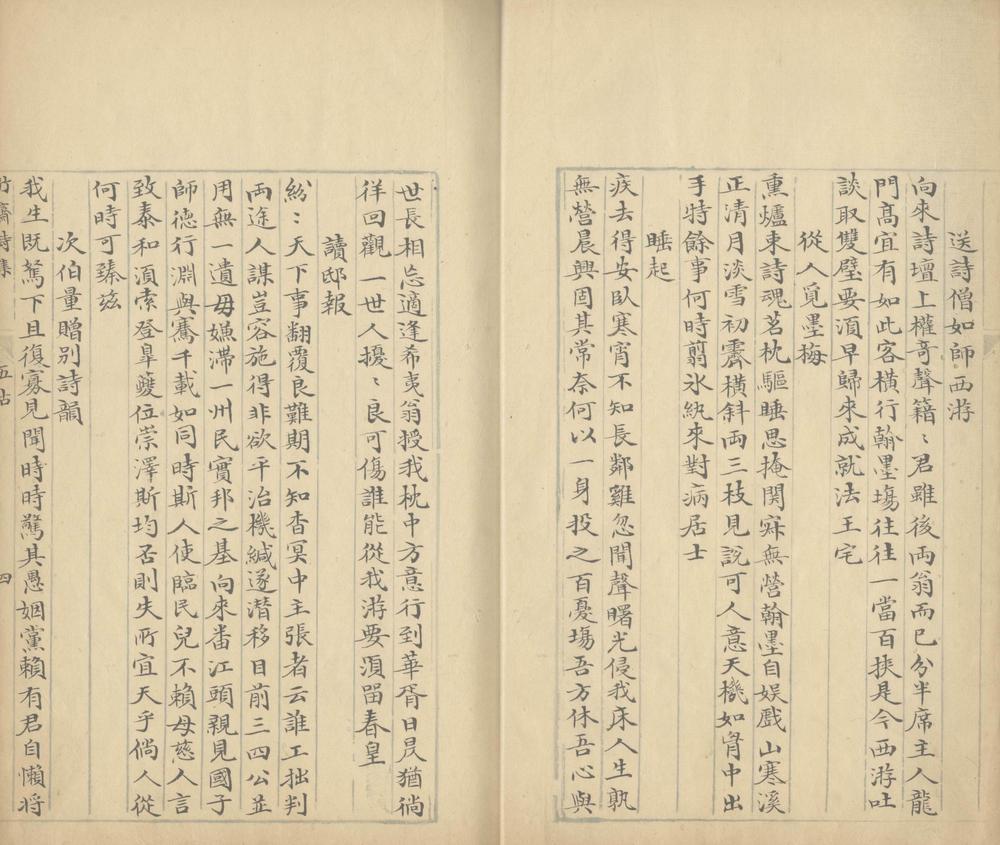 送詩僧如師西游
向來詩壇上權奇聲籍〻君雖後兩翁而已分半席主人龍
門高宜有如此客橫行翰墨場往往一當百挾是今西游吐
談取雙璧要須早歸來成就法王宅
從人覓墨梅
熏爐束詩魂茗枕驅睡思掩関寂無營翰墨自娛戲山寒溪
正清月淡雪初霽橫斜兩三枝見說可人意天機如胷中出
手特餘事何時翦氷紈來對病居士
睡起
疾去得安臥寒宵不知長鄰雞忽聞聲曙光侵我床人生孰
無營晨興固其常奈何以一身投之百憂場吾方休吾心與
世長相忘適逢希夷翁授我枕中方意行到華胥日昃猶徜
徉回觀一世人擾〻良可傷誰能從我游要須留春皇
讀邸報
紛〻天下事翻覆良難期不知杳冥中主張者云誰工拙判
兩途人謀豈容施得非欲平治機緘遂潛移目前三四公並
用無一遺毋嫌滯一州民實邦之基向來番江頭親見國子
師德行淵與騫千載如同時斯人使臨民兒不賴母慈人言
致泰和須索登皐夔位崇澤斯均否則失所宜天乎倘人從
何時可臻茲
次伯量贈別詩韻
我生既駑下且復寡見聞時時驚其愚姻黨賴有君自懶將
竹齋詩集
四